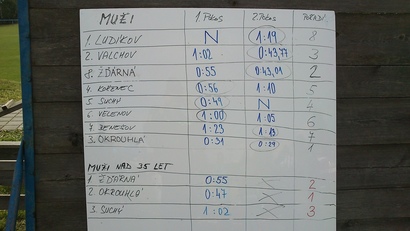 MUŽI 1. Pokus 2. Pokus POŘADÍ
1. LUDÍKOV N 1:19 8
2. VALCHOV 1:02 0:43,77 3
8. ŽĎÁRNÁ 0:55 0:43,01 2
4. KOŘENEC 0:56 1:10 5
5. SUCHÝ 0:49 N 4
6. VELENOV 1:00 1:05 6
7. BENEŠOV 1:23 1:13 7
3. OKROUHLÁ 0:31 0:29 1
MUŽI NAD 35 LET
1. ŽĎÁRNÁ 0:55 2
2. OKROUHLÁ 0:47 X 1
3. SUCHÝ 1:02 X 3